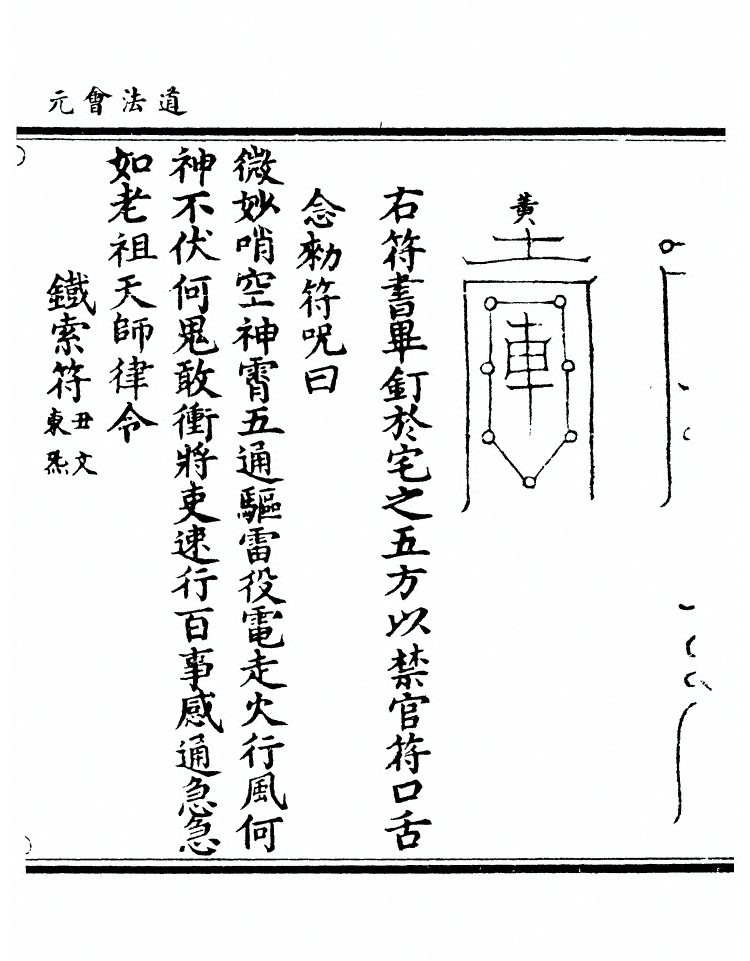 道法會元
黃
土
車
右符書畢釘於宅之五方以禁官符口舌
念勑符呪曰
微妙哨空神霄五通驅雷役電走火行風何
神不伏何鬼敢衝將吏速行百事感通急急
如老祖天師律令
鐵索符丑文
東炁